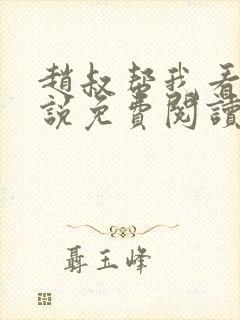 趙叔幫我看
說免費閱讀
聶玉峰